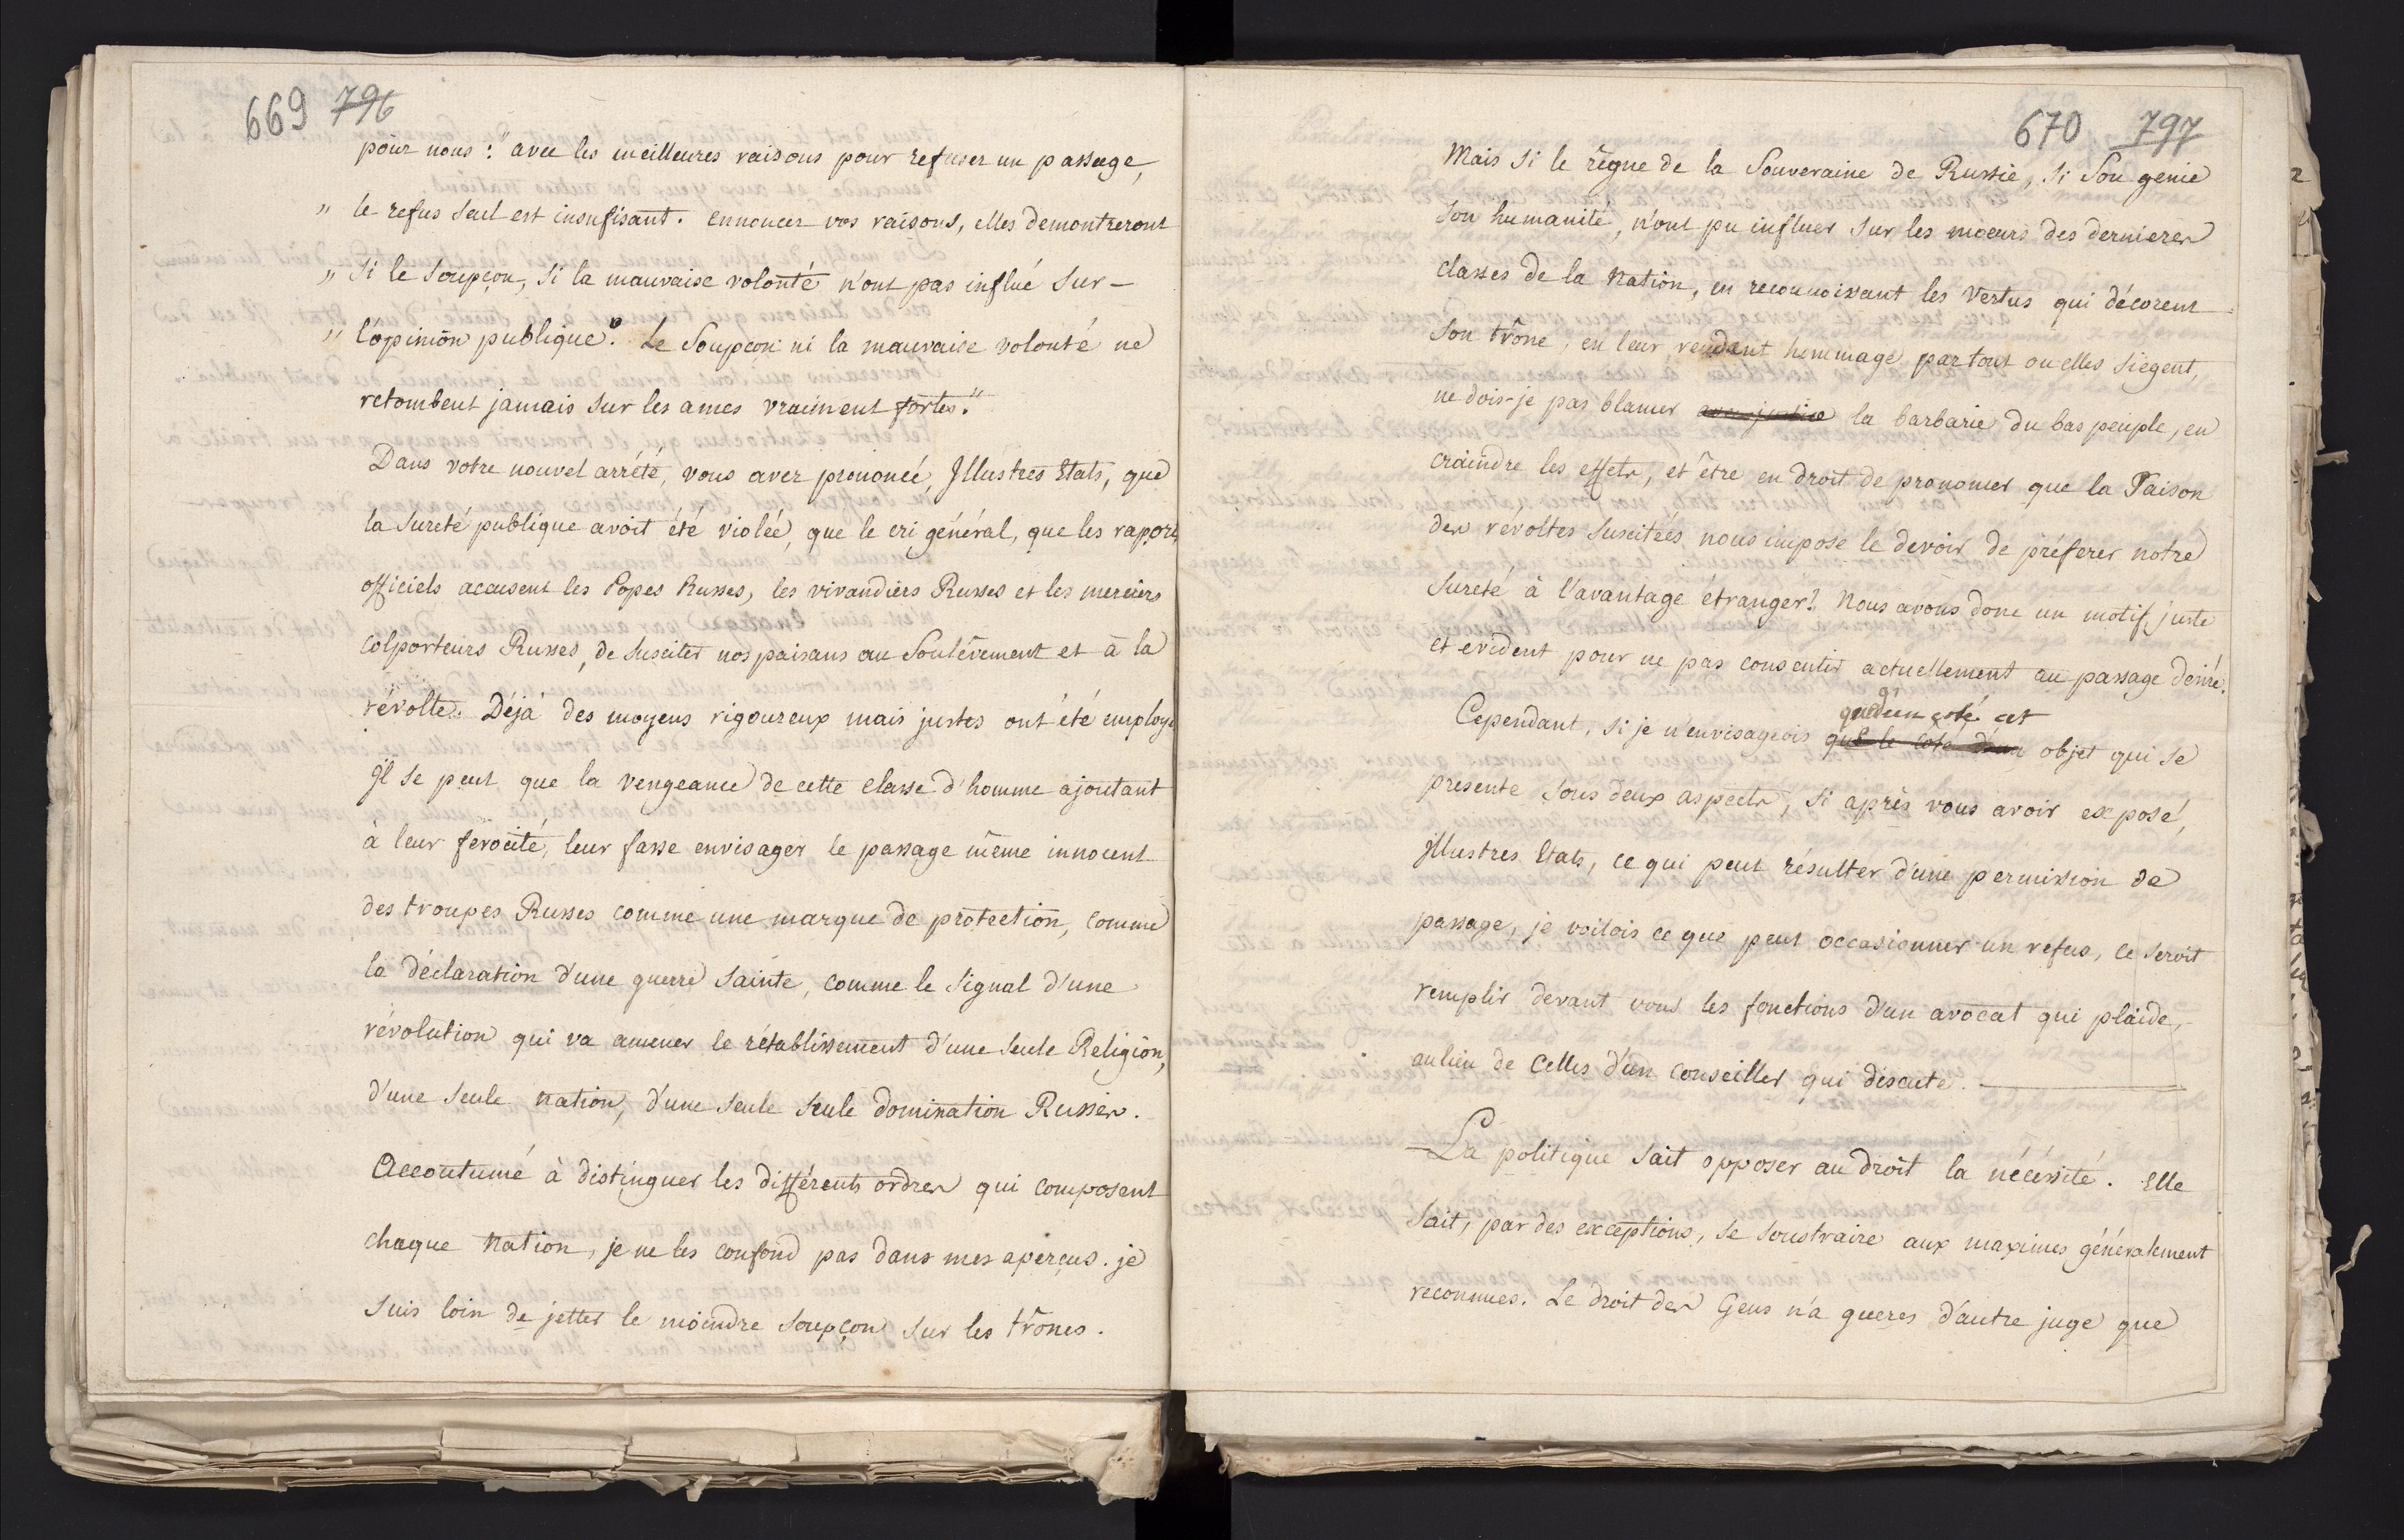 669 796
pour nous : "avec les meilleures raisons pour refuser un passage,
" le refus seul est insufisant. ennoncez vos raisons, elles demontreront
" si le soupçon, si la mauvaise volonté n'ont pas influé sur -
" l'opinion publique". Le Soupçon ni la mauvaise volonté ne
retombent jamais sur les ames vraiment fortes."
Dans votre nouvel arrété, vous avez prononcé, Illustres Etats, que
la sureté publique avoit été violée, que le cri général, que les raports
officiels accusent les Popes Russes, les vivandiers Russes et les merciers
colporteurs Russes, de susciter nos paisans au Soulévement et à la
révolte. Déjà des moyens rigoureux mais justes ont été employé
Il se peut que la vengeance de cette classe d'homme ajoutant
à leur ferocité, leur fasse envisager le passage même innocent
des troupes Russes comme une marque de protection, comme
la déclaration d'une guerre Sainte, comme le signal d'une
révolution qui va amener le rétablissement d'une seule Religion,
d'une seule nation, d'une seule seule domination Russes.
Accoutumé à distinguer les différents ordres qui composent
chaque Nation, je ne les confond pas dans mes aperçus. je
suis loin de jetter le moindre soupçon sur les trônes.
670 797
Mais si le règne de la Souveraine de Russie, si Son genie
son humanité, n'ont pu influer sur les moeurs des dernieres
classes de la Nation, en reconnoissant les Vertus qui décorent
son trône, en leur rendant hommage partout ou elles siegent,
ne dois-je pas blamer avec justice la barbarie du bas peuple, en
craindre les effets, et être en droit de prononcer que la Raison
des révoltes suscitées nous impose le devoir de préferer notre
sureté à l'avantage étranger? Nous avons donc un motif juste
et evident pour ne pas consentir actuellement au passage desiré.
qu'
que d'un coté cet
Cependant, si je n'envisageois que le coté d'un objet qui se
presente sous deux aspects, si après vous avoir exposé,
Illustres Etats, ce qui peut résulter d'une permission de
passage, je voilois ce que peut occasionner un refus, ce seroit
remplir devant vous les fonctions d'un avocat qui plaide,
au lieu de Celles d'un conseiller qui discute.
La politique sait opposer au droit la nécéssité. Elle
sait, par des exceptions, se soustraire aux maximes généralement
reconnues. Le droit des Gens n'a gueres d'autre juge que